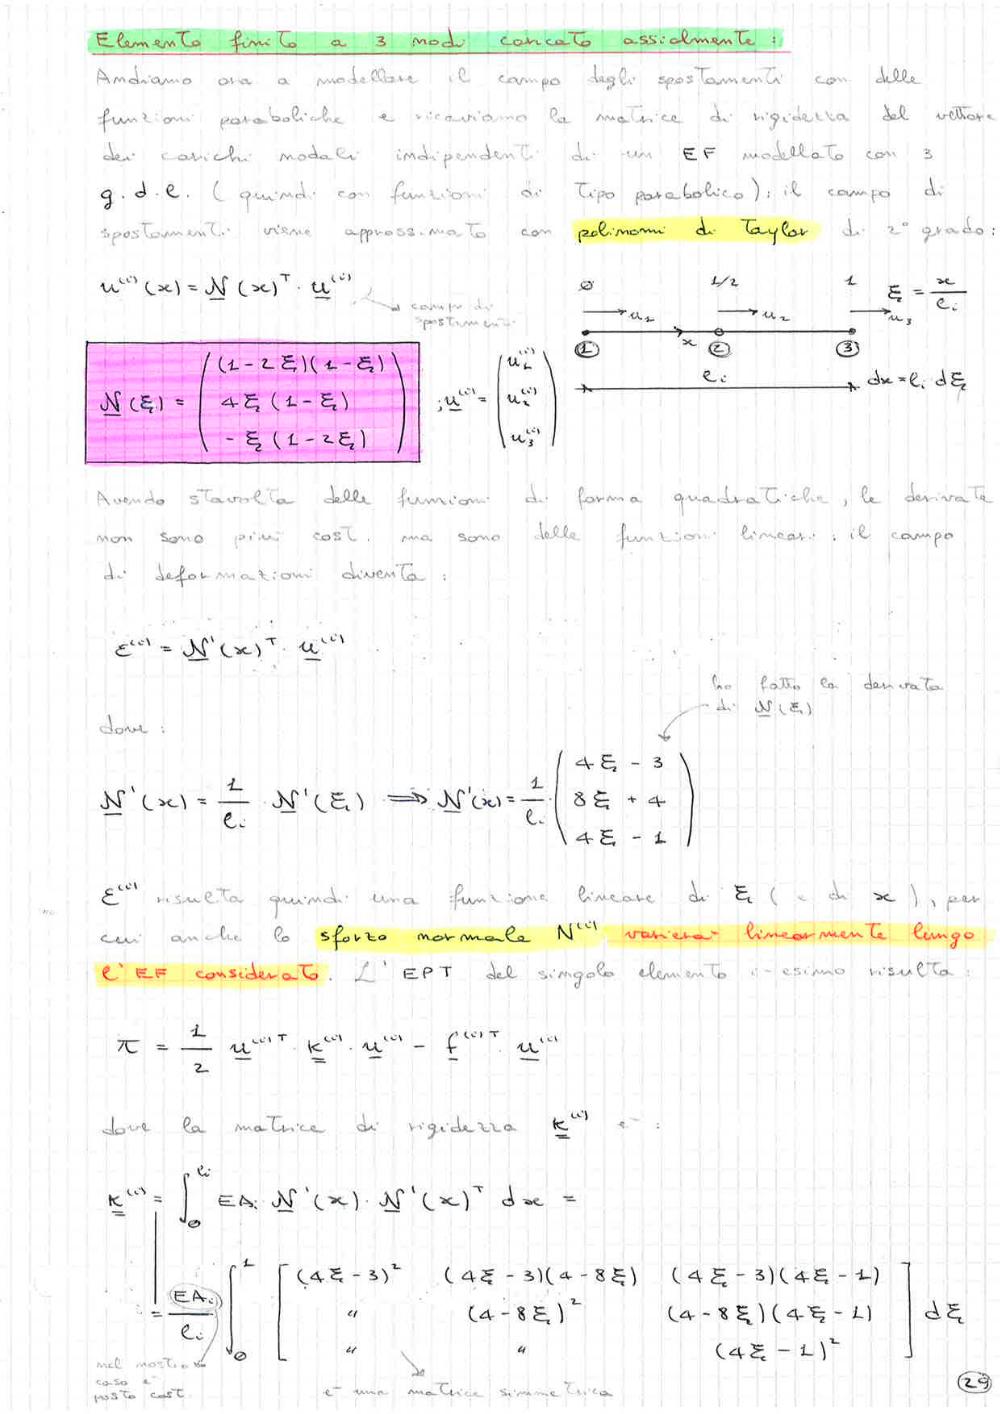 Elemento finito a 3 nodi caricato assialmente :
Andiamo ora a modellare il campo degli spostamenti con delle
funzioni paraboliche e ricaviamo la matrice di rigidezza del vettore
dei carichi nodali indipendenti di un EF modellato con 3
g.d.l. (quindi con funzioni di tipo parabolico): il campo di
spostamenti viene approssimato con polinomi di Taylor di 2° grado:
u⁽ⁱ⁾(x) = N(x)ᵀ · u⁽ⁱ⁾
campo di
spostamenti
0 1/2 1 ξ = x/ℓi
u1 u2 u3
x
1 2 3
ℓi dx = ℓi dξ
N(ξ) = ( (1-2ξ)(1-ξ)
4ξ(1-ξ)
-ξ(1-2ξ) ) ; u⁽ⁱ⁾ = ( u1⁽ⁱ⁾
u2⁽ⁱ⁾
u3⁽ⁱ⁾ )
Avendo stavolta delle funzioni di forma quadratiche, le derivate
non sono più cost. ma sono delle funzioni lineari: il campo
di deformazioni diventa :
ε⁽ⁱ⁾ = N'(x)ᵀ · u⁽ⁱ⁾
ho fatto la derivata
di N(ξ)
dove :
N'(x) = 1/ℓi · N'(ξ) ⟹ N'(x) = 1/ℓi · ( 4ξ - 3
8ξ + 4
4ξ - 1 )
ε⁽ⁱ⁾ risulta quindi una funzione lineare di ξ (e di x), per
cui anche lo sforzo normale N⁽ⁱ⁾ varierà linearmente lungo
l'EF considerato. L'EPT del singolo elemento i-esimo risulta :
π = 1/2 u⁽ⁱ⁾ᵀ · k⁽ⁱ⁾ · u⁽ⁱ⁾ - f⁽ⁱ⁾ᵀ · u⁽ⁱ⁾
dove la matrice di rigidezza k⁽ⁱ⁾ è :
k⁽ⁱ⁾ = ∫₀^ℓi EAi N'(x) · N'(x)ᵀ dx =
= EAi/ℓi ∫₀¹ [ (4ξ-3)² (4ξ-3)(4-8ξ) (4ξ-3)(4ξ-1)
" (4-8ξ)² (4-8ξ)(4ξ-1)
" " (4ξ-1)² ] dξ
nel nostro
caso è
posto cost.
è una matrice simmetrica
29